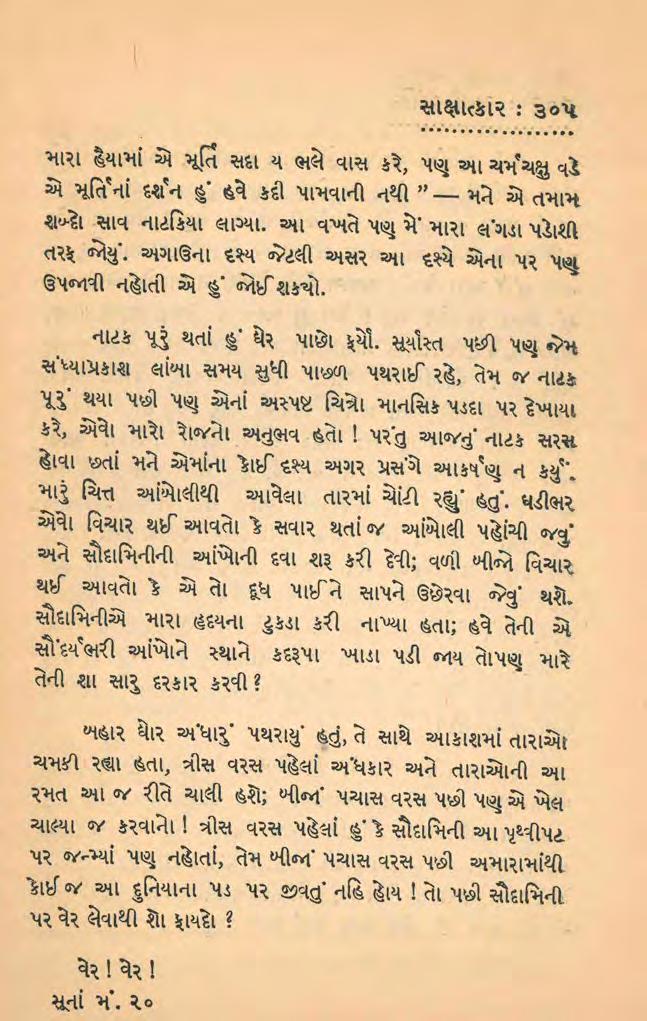 સાક્ષાત્કાર : ૩૦૫
મારા હૈયામાં એ મૂર્તિ સદા ય ભલે વાસ કરે, પણ આ ચર્મચક્ષુ વડે
એ મૂર્તિનાં દર્શન હું હવે કદી પામવાની નથી ” — મને એ તમામ
શબ્દો સાવ નાટકિયા લાગ્યા. આ વખતે પણ મેં મારા લંગડા પડોશી
તરફ જોયું. અગાઉના દશ્ય જેટલી અસર આ દશ્યે એના પર પણ
ઉપજાવી નહોતી એ હું જોઈ શક્યો.
નાટક પૂરું થતાં હું ઘેર પાછો ફર્યો. સૂર્યાસ્ત પછી પણ જેમ
સંધ્યાપ્રકાશ લાંબા સમય સુધી પાછળ પથરાઈ રહે, તેમ જ નાટક
પૂરું થયા પછી પણ એનાં અસ્પષ્ટ ચિત્રો માનસિક પડદા પર દેખાયા
કરે, એવો મારો રોજનો અનુભવ હતો ! પરંતુ આજનું નાટક સરસ
હોવા છતાં મને એમાંના કોઈ દશ્ય અગર પ્રસંગે આકર્ષણ ન કર્યું.
મારું ચિત્ત આંબોલીથી આવેલા તારમાં ચોંટી રહ્યું હતું. ઘડીભર
એવો વિચાર થઈ આવતો કે સવાર થતાં જ આંબોલી પહોંચી જવું
અને સૌદામિનીની આંખોની દવા શરૂ કરી દેવી; વળી બીજો વિચાર
થઈ આવતો કે એ તો દૂધ પાઈને સાપને ઉછેરવા જેવું થશે.
સૌદામિનીએ મારા હૃદયના ટુકડા કરી નાખ્યા હતા; હવે તેની એ
સૌંદર્યભરી આંખોને સ્થાને કદરૂપા ખાડા પડી જાય તોપણ મારે
તેની શા સારુ દરકાર કરવી ?
બહાર ઘોર અંધારું પથરાયું હતું, તે સાથે આકાશમાં તારાઓ
ચમકી રહ્યા હતા, ત્રીસ વરસ પહેલાં અંધકાર અને તારાઓની આ
રમત આ જ રીતે ચાલી હશે; બીજાં પચાસ વરસ પછી પણ એ ખેલ
ચાલ્યા જ કરવાનો ! ત્રીસ વરસ પહેલાં હું કે સૌદામિની આ પૃથ્વીપટ
પર જન્મ્યાં પણ નહોતાં, તેમ બીજાં પચાસ વરસ પછી અમારામાંથી
કોઈ જ આ દુનિયાના પડ પર જીવતું નહિ હોય ! તો પછી સૌદામિની
પર વેર લેવાથી શો ફાયદો ?
વેર ! વેર !
સૂનાં મં. ૨૦